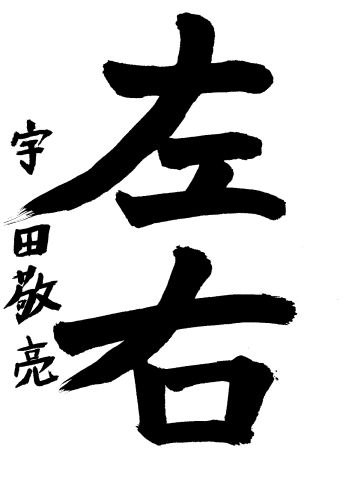 左右
宇田敬亮